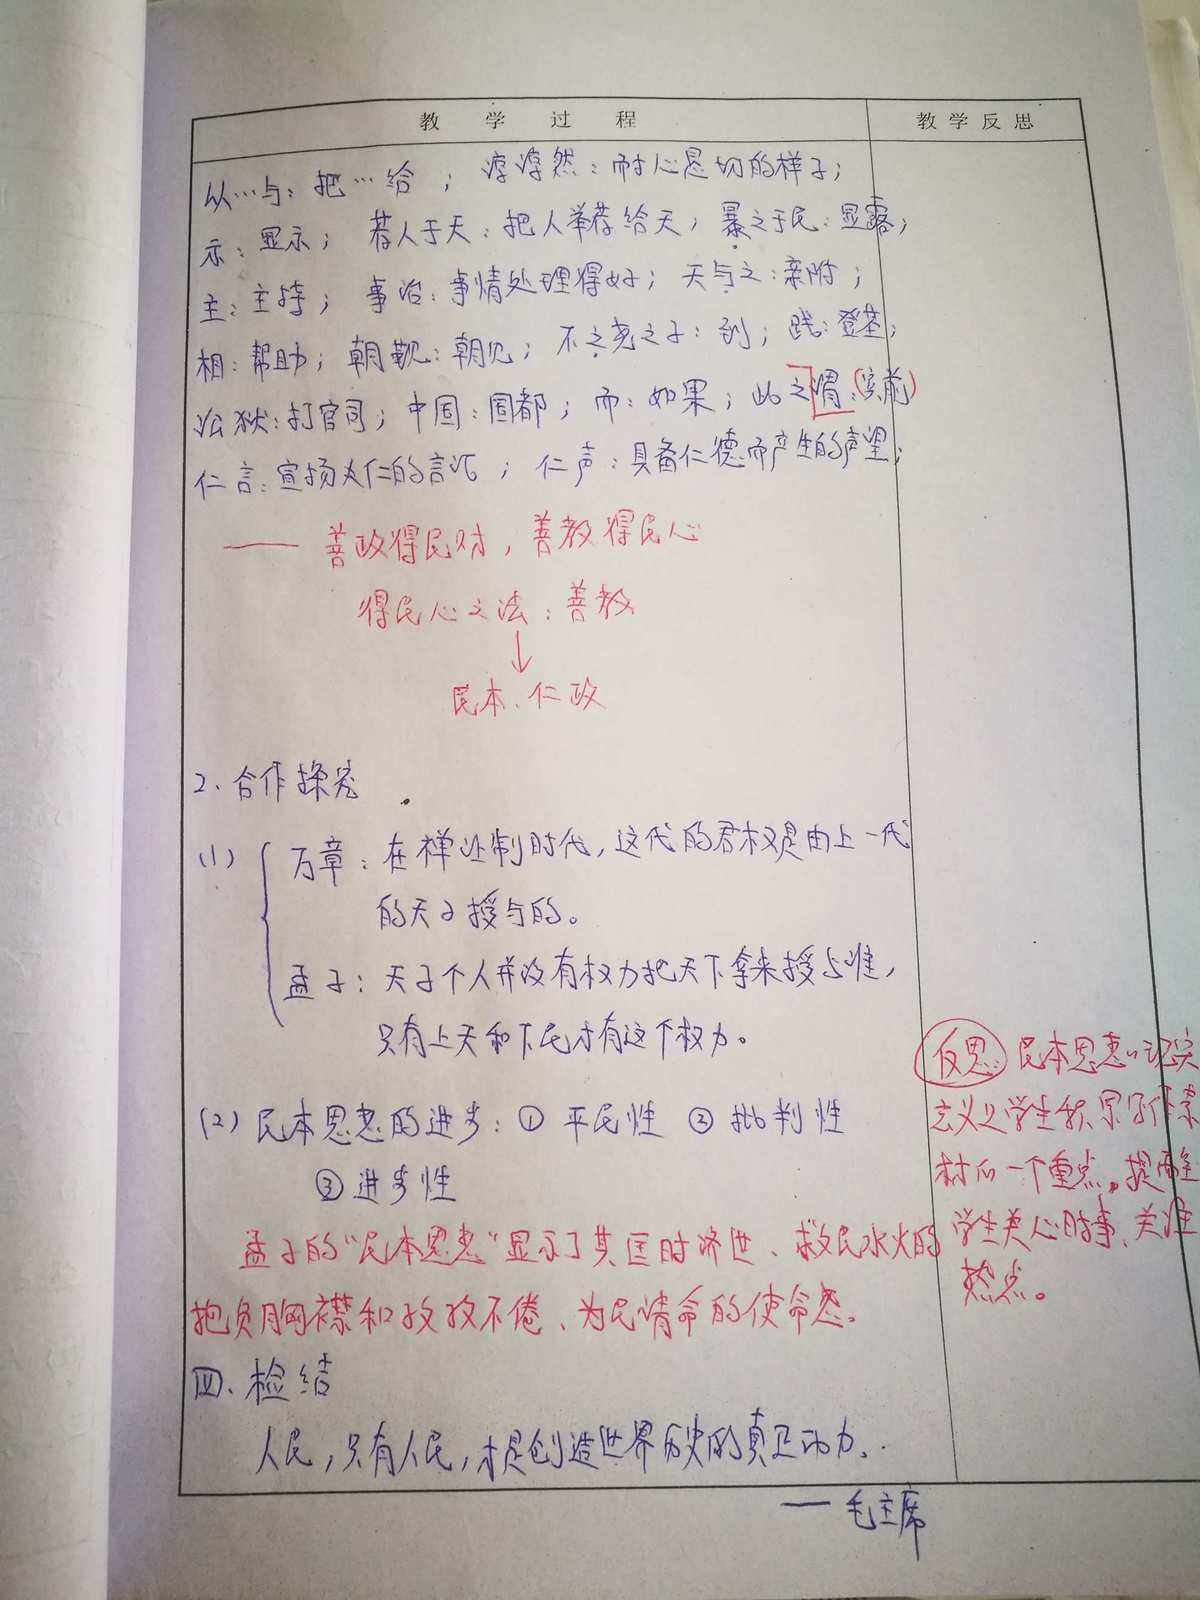 教学过程
教学反思
以…与：把…给； 谆谆然：耐心恳切的样子；
示：显示； 荐人于天：把人举荐给天；暴之于民：显露；
主：主持； 事治：事情处理得好； 天与之：亲附；
相：帮助；朝觐：朝见； 不之尧之子：到；践：登基；
讼狱：打官司；中国：国都；而：如果；此之谓：(宾前)
仁言：宣扬为仁的言论；仁声：具备仁德而产生的声望；
—— 善政得民财，善教得民心
得民心之法：善教
↓
民本、仁政
2、合作探究
(1) 万章：在禅让制时代，这代的君权是由上一代
的天子授与的。
孟子：天子个人并没有权力把天下拿来授与谁，
只有上天和下民才有这个权力。
(2) 民本思想的进步：① 平民性 ② 批判性
③ 进步性
孟子的“民本思想”显示了其匡时济世、救民水火的
抱负胸襟和孜孜不倦、为民请命的使命感。
四、检结
人民，只有人民，才是创造世界历史的真正动力。
—— 毛主席
反思：民本思想的现实
意义是学生积累写作素
材的一个重点。提醒
学生关心时事、关注
热点。